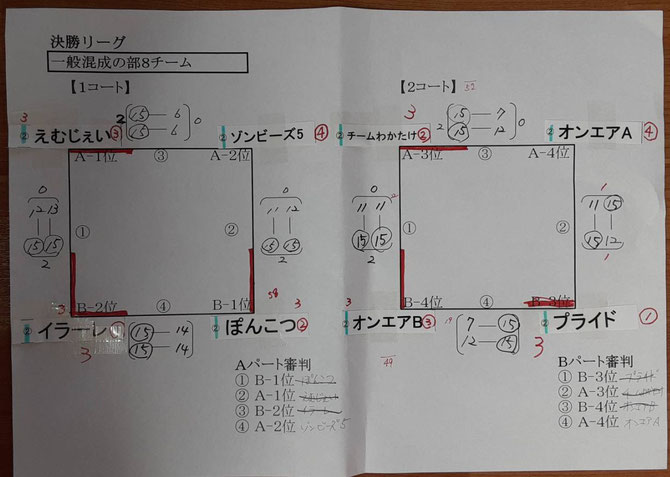 決勝リーグ
一般混成の部8チーム
【1コート】
【2コート】 52
3 2 15 — 6 0
15 — 6
② えむじぇい ③ ② ゾンビーズ5 ④
A-1位 ③ A-2位
0
12 13
15 15
2
①
0
11 12
15 15
2
②
B-2位 ④ B-1位
3 58 3
② イラーレ ① ② ぽんこつ ②
3 15 — 14
15 — 14
3 2 15 — 7 0
15 — 12
② チームわかたけ ② ② オンエアA ④
A-3位 ③ A-4位
0
11 11
15 15
2
①
1
11 15
15 12
1
②
B-4位 ④ B-3位
3 19
② オンエアB ③ ② プライド ①
7 — 15
12 — 15
3
49
Aパート審判
① B-1位 ぽんこつ
② A-1位 えむじぇい
③ B-2位 イラーレ
④ A-2位 ゾンビーズ5
Bパート審判
① B-3位 プライド
② A-3位
③ B-4位 オンエアB
④ A-4位 オンエアA